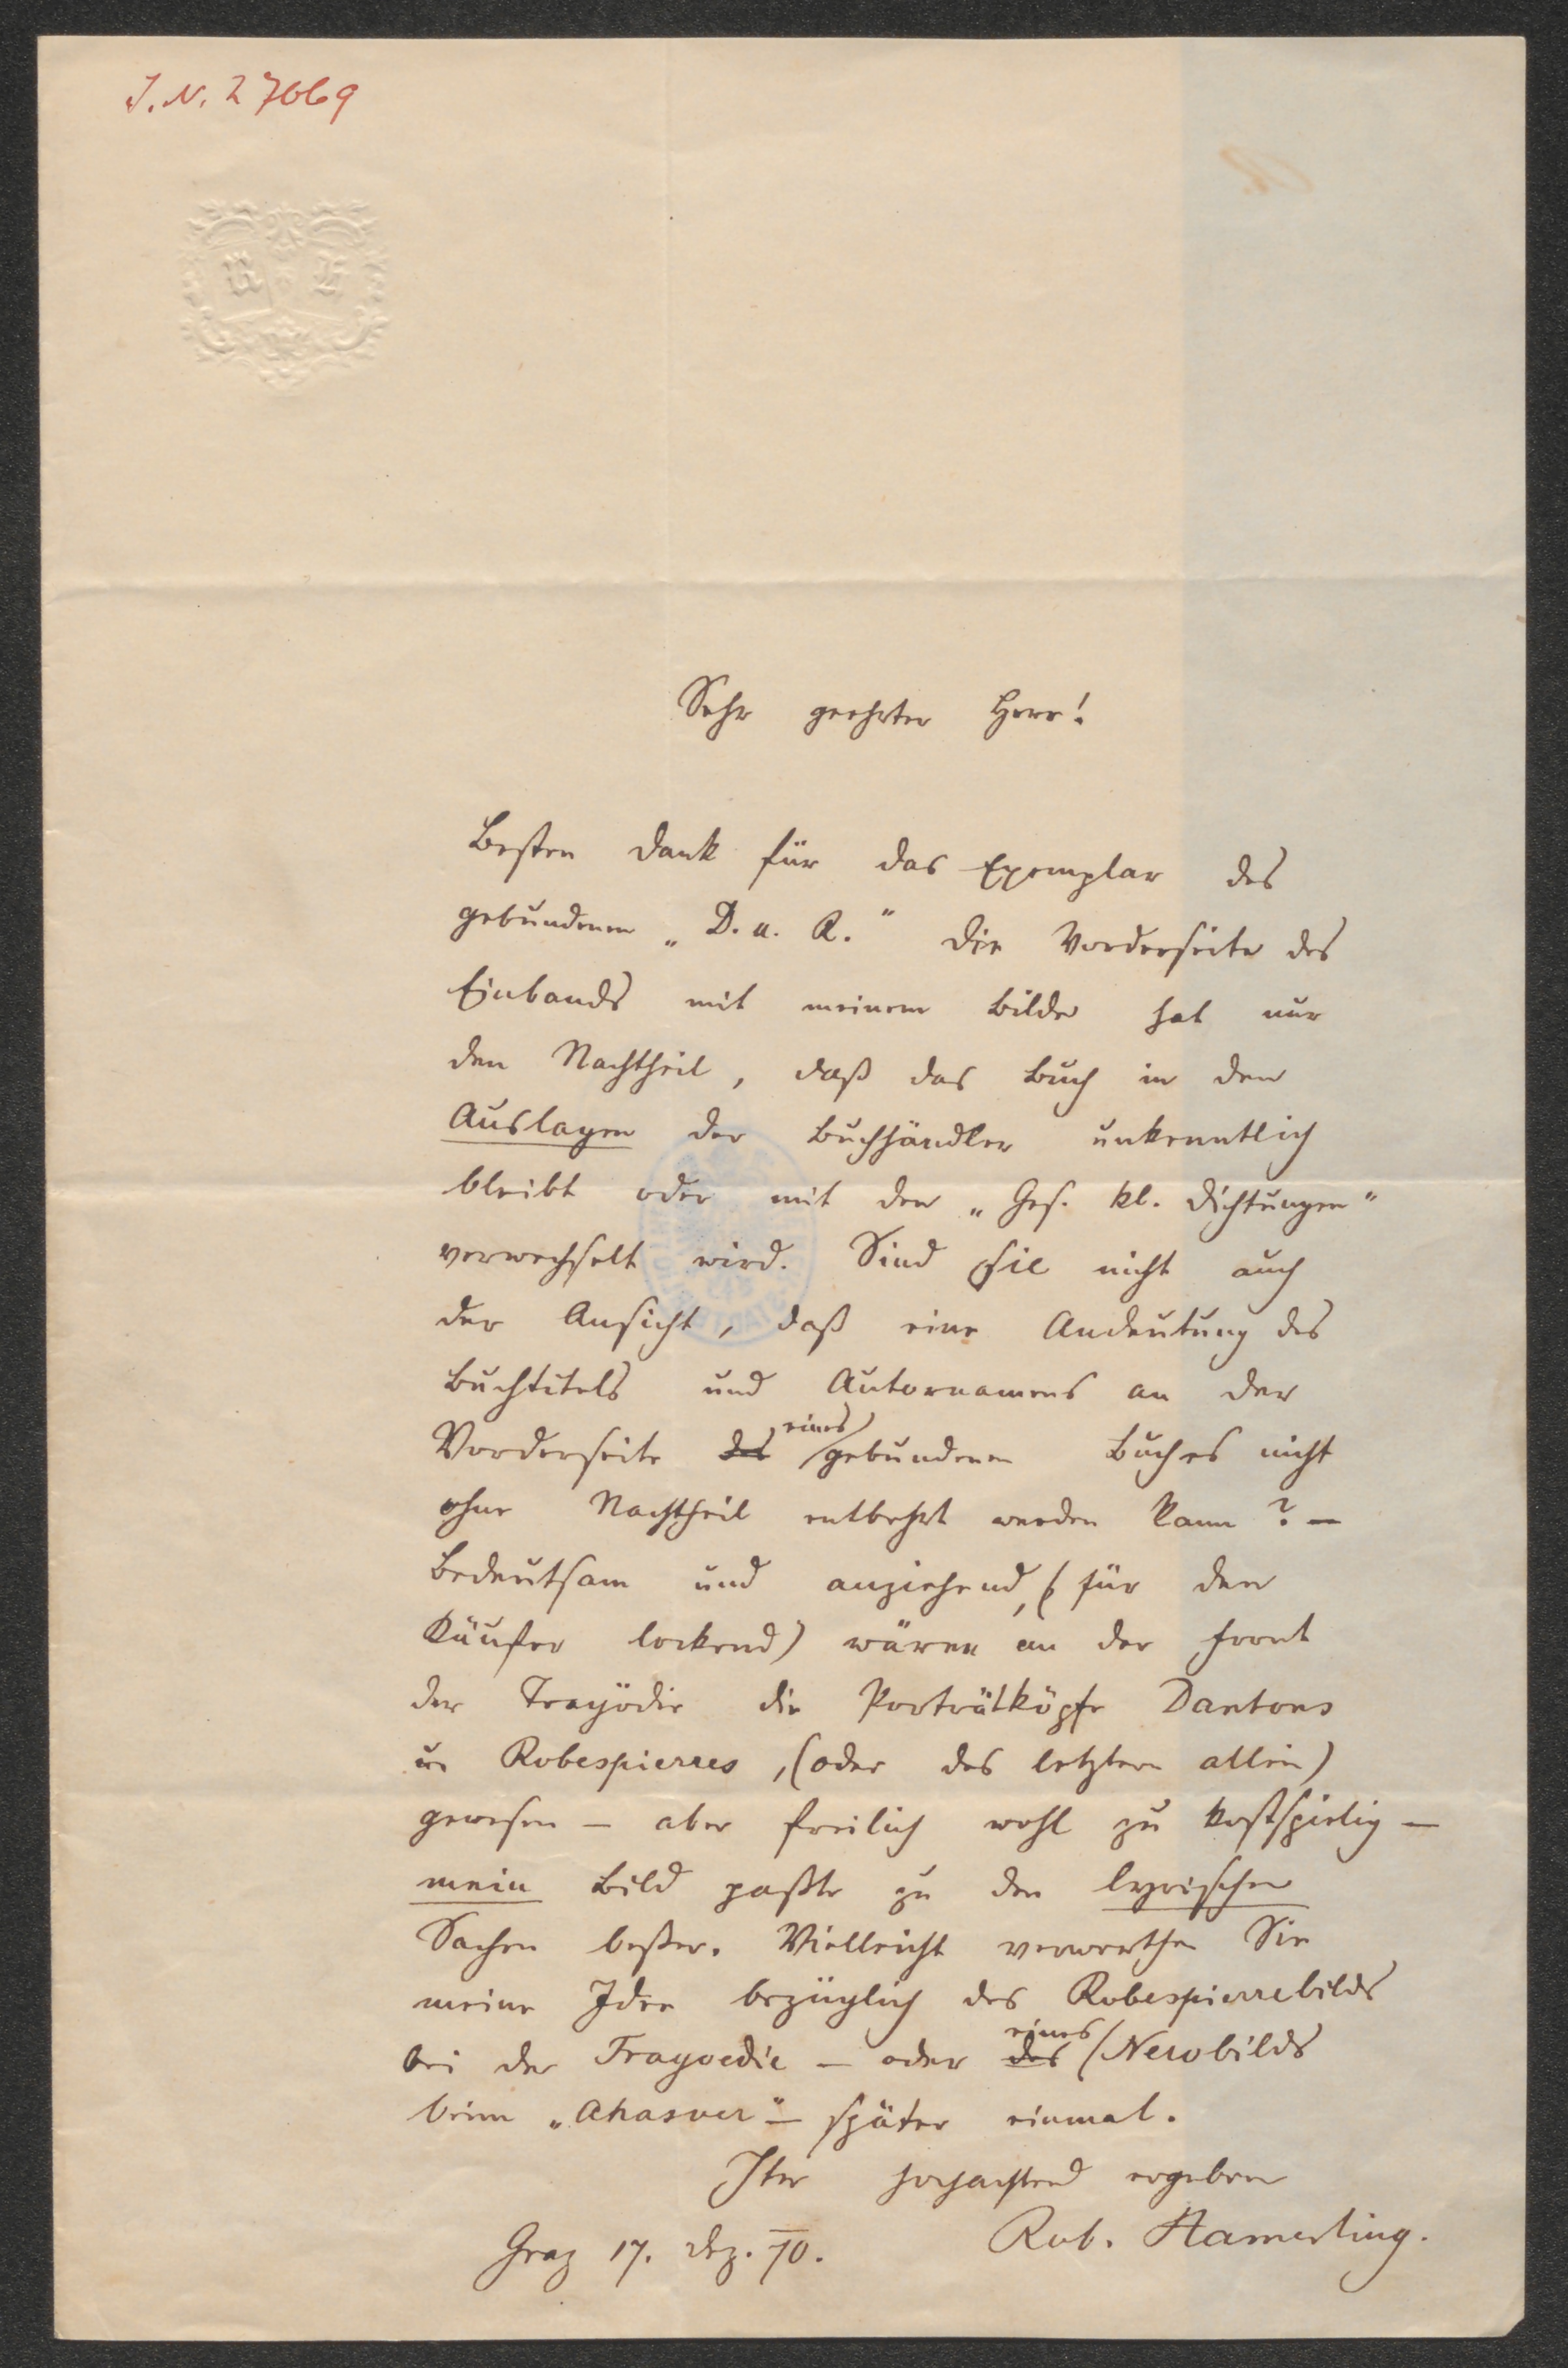 I. N. 27669
R H
Sehr geehrter Herr!
Besten Dank für das Exemplar des
gebundenen „D. u. R." Die Vorderseite des
Einbands mit meinem Bilde hat nur
den Nachtheil, daß das Buch in den
Auslagen der Buchhändler unkenntlich
bleibt oder mit den „Ges. kl. Dichtungen"
verwechselt wird. Sind Sie nicht auch
der Ansicht, daß eine Andeutung des
Buchtitels und Autornamens an der
Vorderseite des eines gebundenen Buches nicht
ohne Nachtheil entbehrt werden kann? —
Bedeutsam und anziehend, (für den
Käufer lockend) wären an der Front
der Tragödie die Porträtköpfe Dantons
u. Robespierres, (oder des letztern allein)
gewesen — aber freilich wohl zu kostspielig —
mein Bild paßte zu den lyrischen
Sachen beßer. Vielleicht verwerthen Sie
meine Idee bezüglich des Robespierrebilds
bei der Tragoedie — oder des eines Nerobilds
beim „Ahasver" — später einmal.
Ihr hochachtend ergebner
Rob. Hamerling.
Graz 17. Dez. 70.